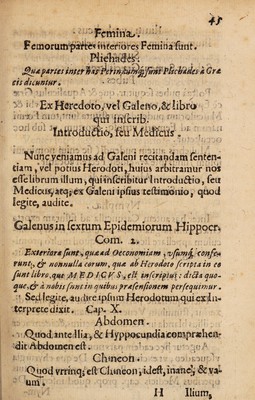 45
Femina.
Femorum partes interiores Femina sunt.
Plichades.
Quæ partes inter has Perinæumq; sunt Plichades à Græ
cis dicuntur.
Ex Heredoto, vel Galeno, & libro
qui inscrib.
Introductio, seu Medicus.
Nunc veniamus ad Galeni recitandam senten-
tiam, vel potius Herodoti, huius arbitramur nos
esse librum illum, qui inscribitur Introductio, seu
Medicus, atq; ex Galeni ipsius testimonio, quod
legite, audite.
Galenus in sextum Epidemiorum Hippocr.
Com. 2.
Exteriora sunt, quæ ad Oeconomiam, usumq; confe-
runt, & nonnulla eorum, quæ ab Herodoto scripta in eo
sunt libro, que MEDICVS, est inscriptus: dicta quo-
que, & à nobis sunt in quibus præsensionem persequimur.
Sed legite, audite ipsum Herodotum qui ex In-
terprete dixit. Cap. X.
Abdomen.
Quod ante Ilia, & Hyppocundia compræhen-
dit Abdomen est.
Chineon.
Quod vrrinq; est Chneon, idest, inane, & va-
uum.
H Ilium,